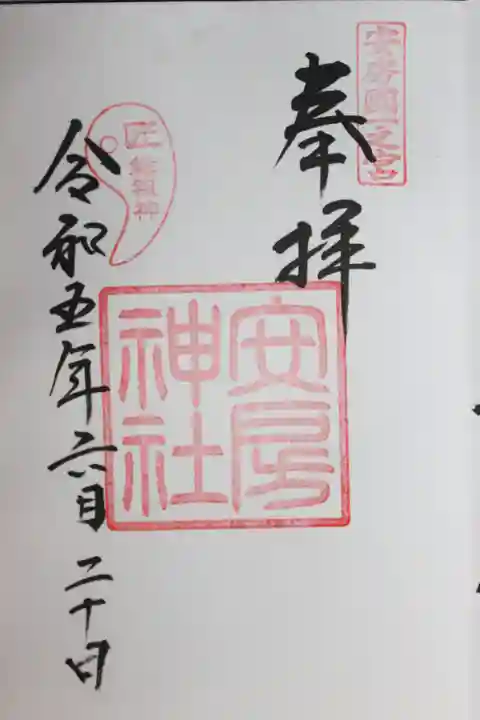 安房國一之宮
奉拝
安房
神社
匠
総祖神
令和五年六月二十日